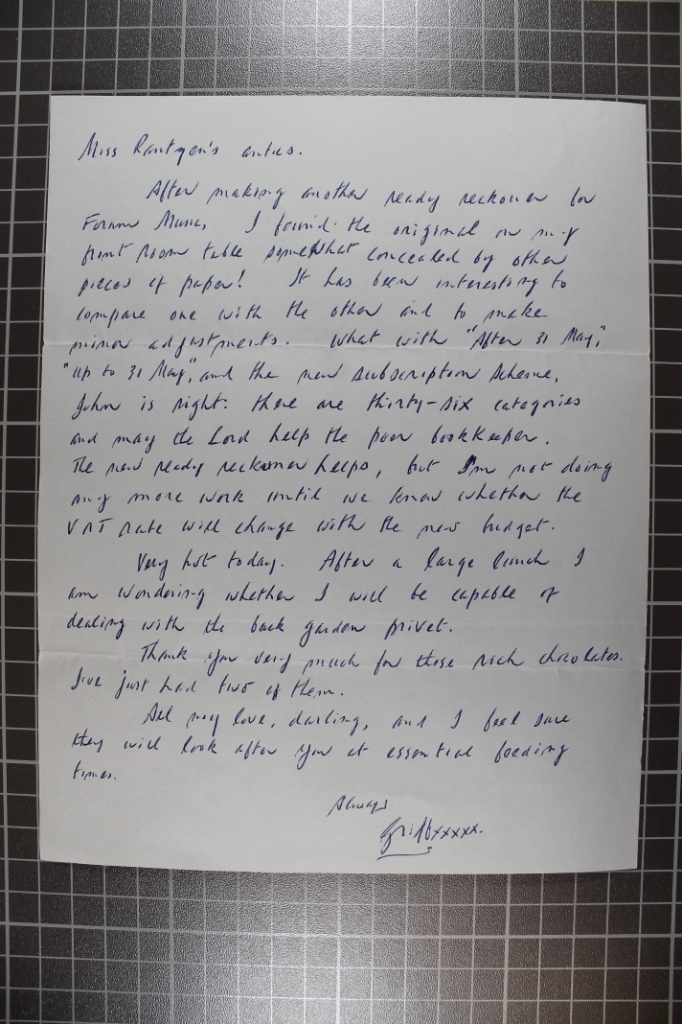 Miss Rantzen's antics.
After making another ready reckoner for
Forum Music, I found the original on my
front room table somewhat concealed by other
pieces of paper! It has been interesting to
compare one with the other and to make
minor adjustments. What with "After 31 May,"
"up to 31 May," and the new subscription scheme,
John is right: there are thirty-six categories
and may the Lord help the poor bookkeeper.
The new ready reckoner helps, but I'm not doing
any more work until we know whether the
VAT rate will change with the new budget.
Very hot today. After a large lunch I
am wondering whether I will be capable of
dealing with the back garden privet.
Thank you very much for those rich chocolates.
I've just had two of them.
All my love, darling, and I feel sure
they will look after you at essential feeding
times.
Always
Griffxxxxx.